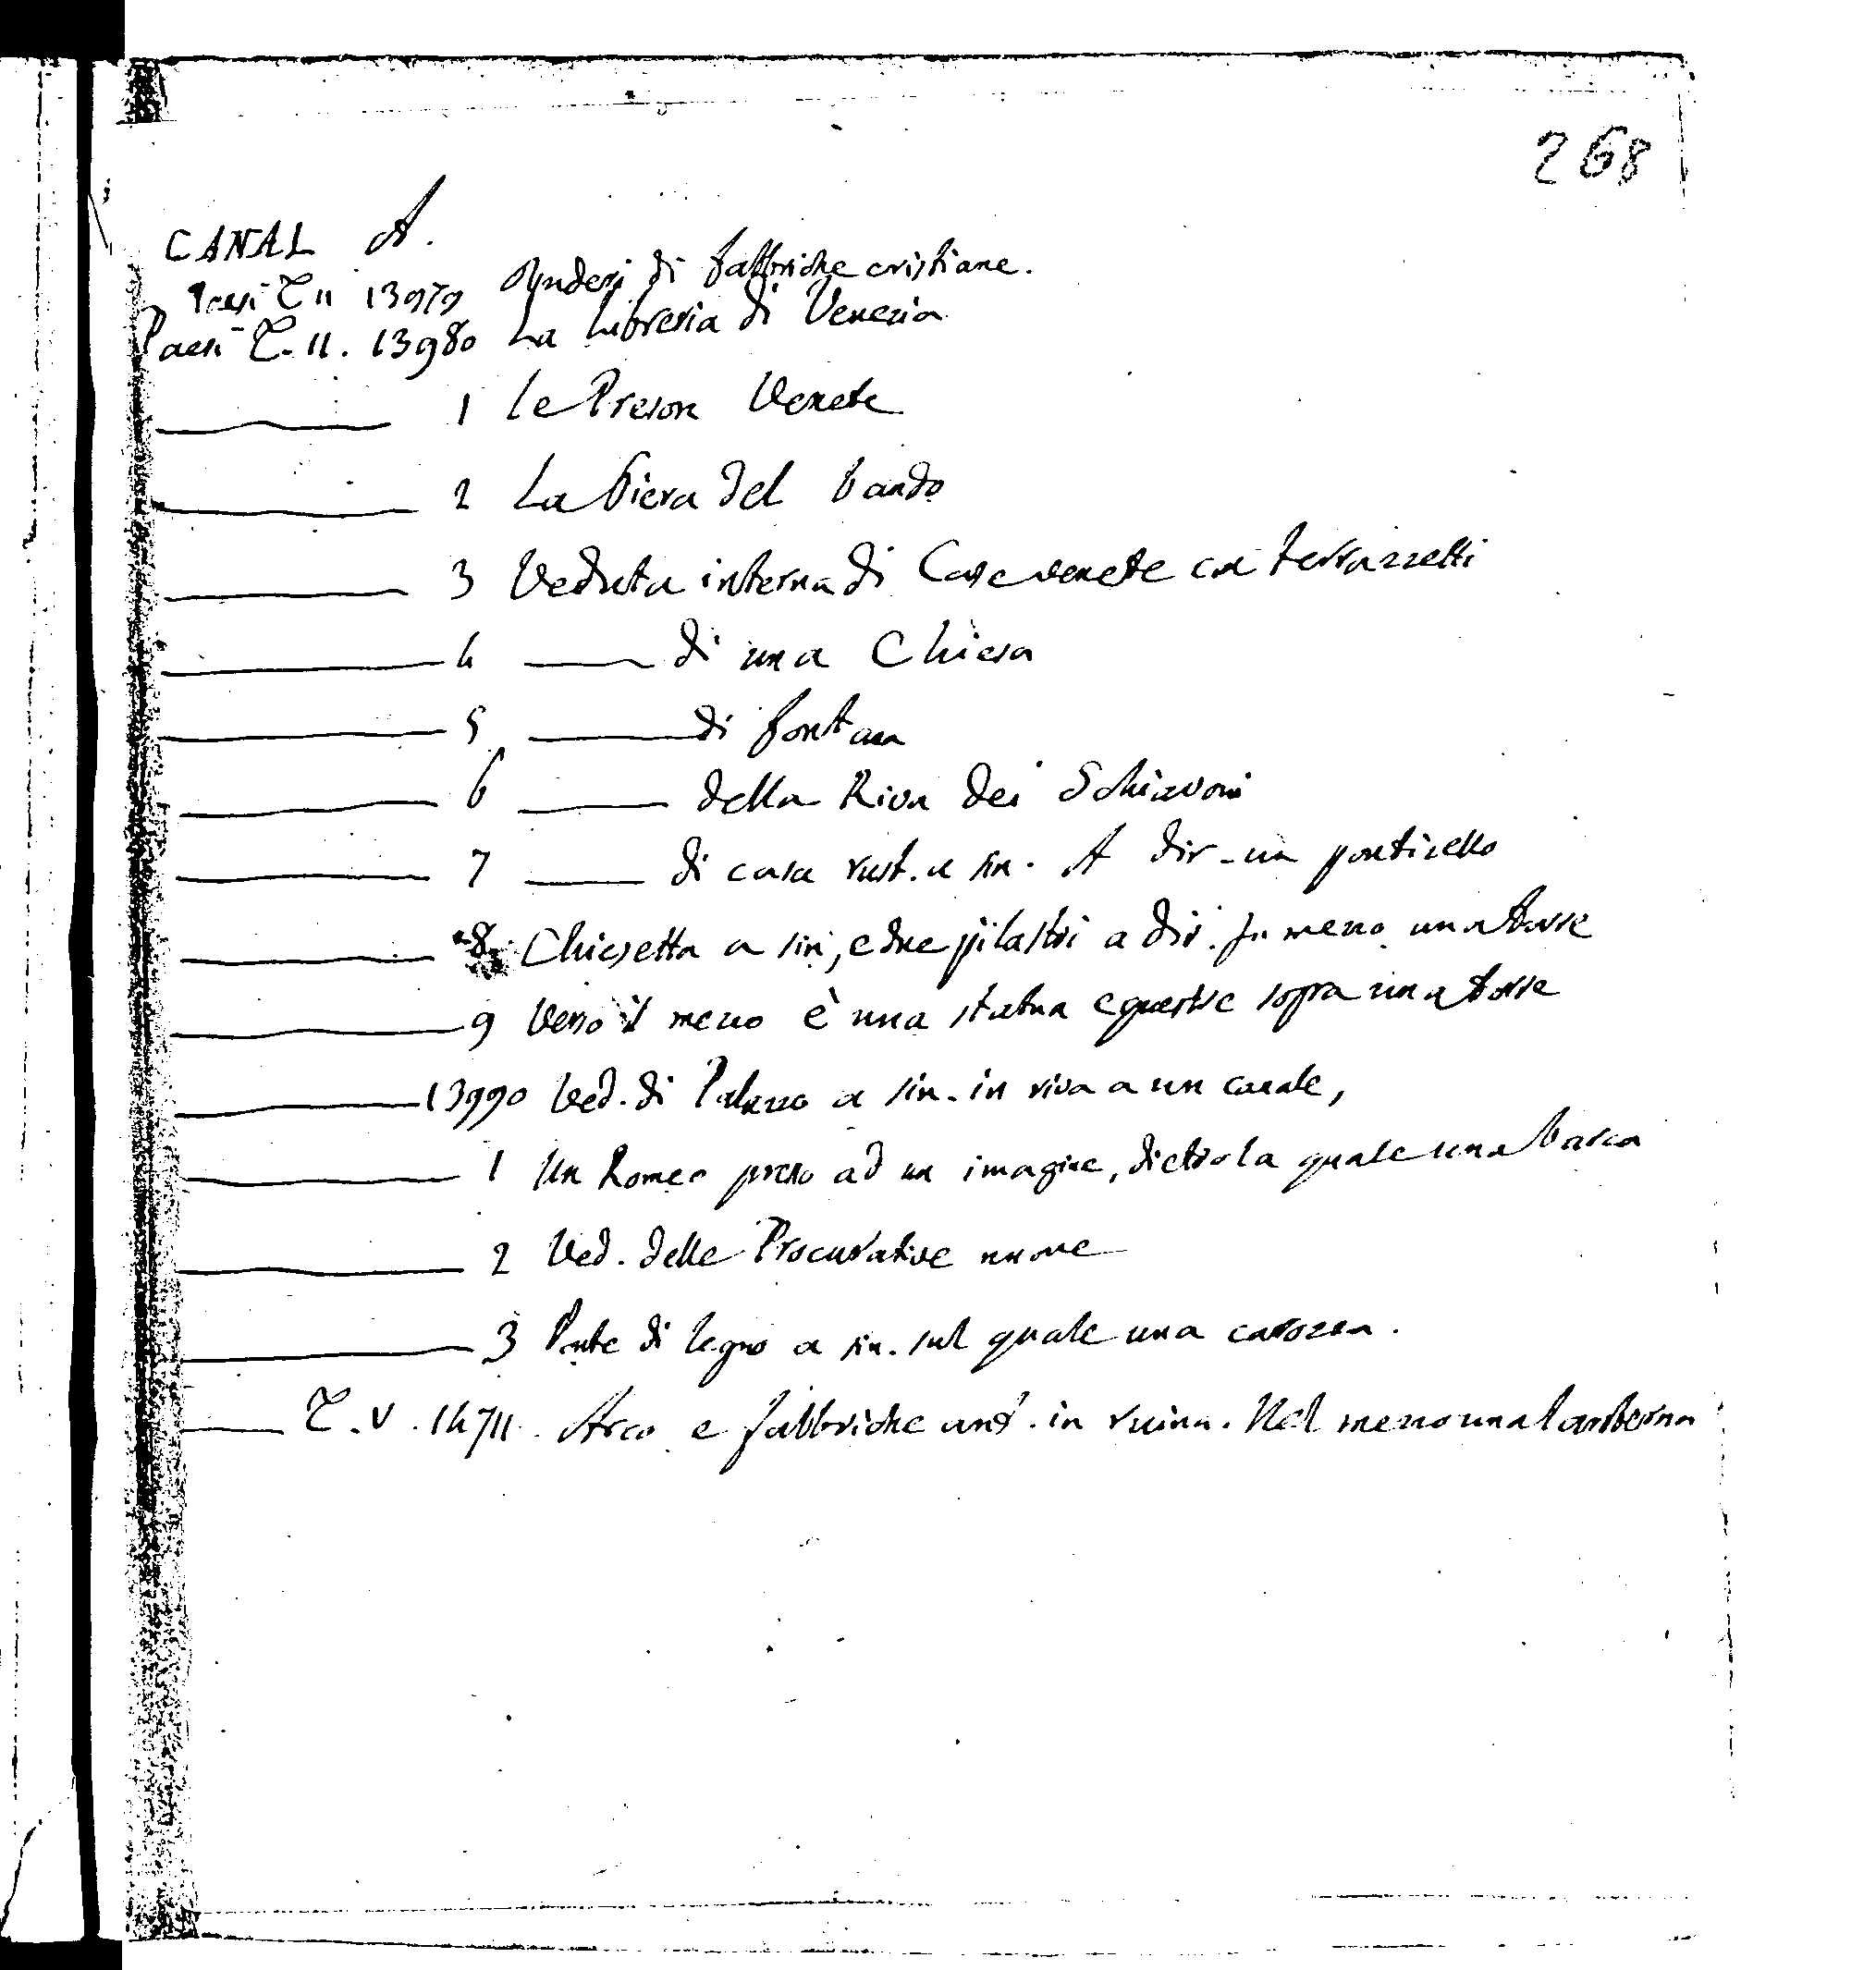 268
CANAL A.
Paesi T. II 13979 Ruderi di fabbriche cristiane.
Paesi T. II. 13980 La Libreria di Venezia
1 Le Preson Venete
2 La Piera del bando
3 Veduta interna di Case venete con terrazzetti
4 di una Chiesa
5 di fontan
6 della Riva dei Schiavoni
7 di casa rust. a sin. A dir. un ponticello
8 Chiesetta a sin, e due pilastri a dir. In mezzo una torre
9 Verso il mezzo è una statua equestre sopra una torre
13990 Ved. di Palazzo a sin. in riva a un canale,
1 Un Romeo presso ad un imagine, dietro la quale una barca
2 Ved. delle Procurative nuove
3 Ponte di legno a sin. sul quale una carozza.
T. V. 14711. Arco e fabbriche ant. in ruina. Nel mezzo una lanterna